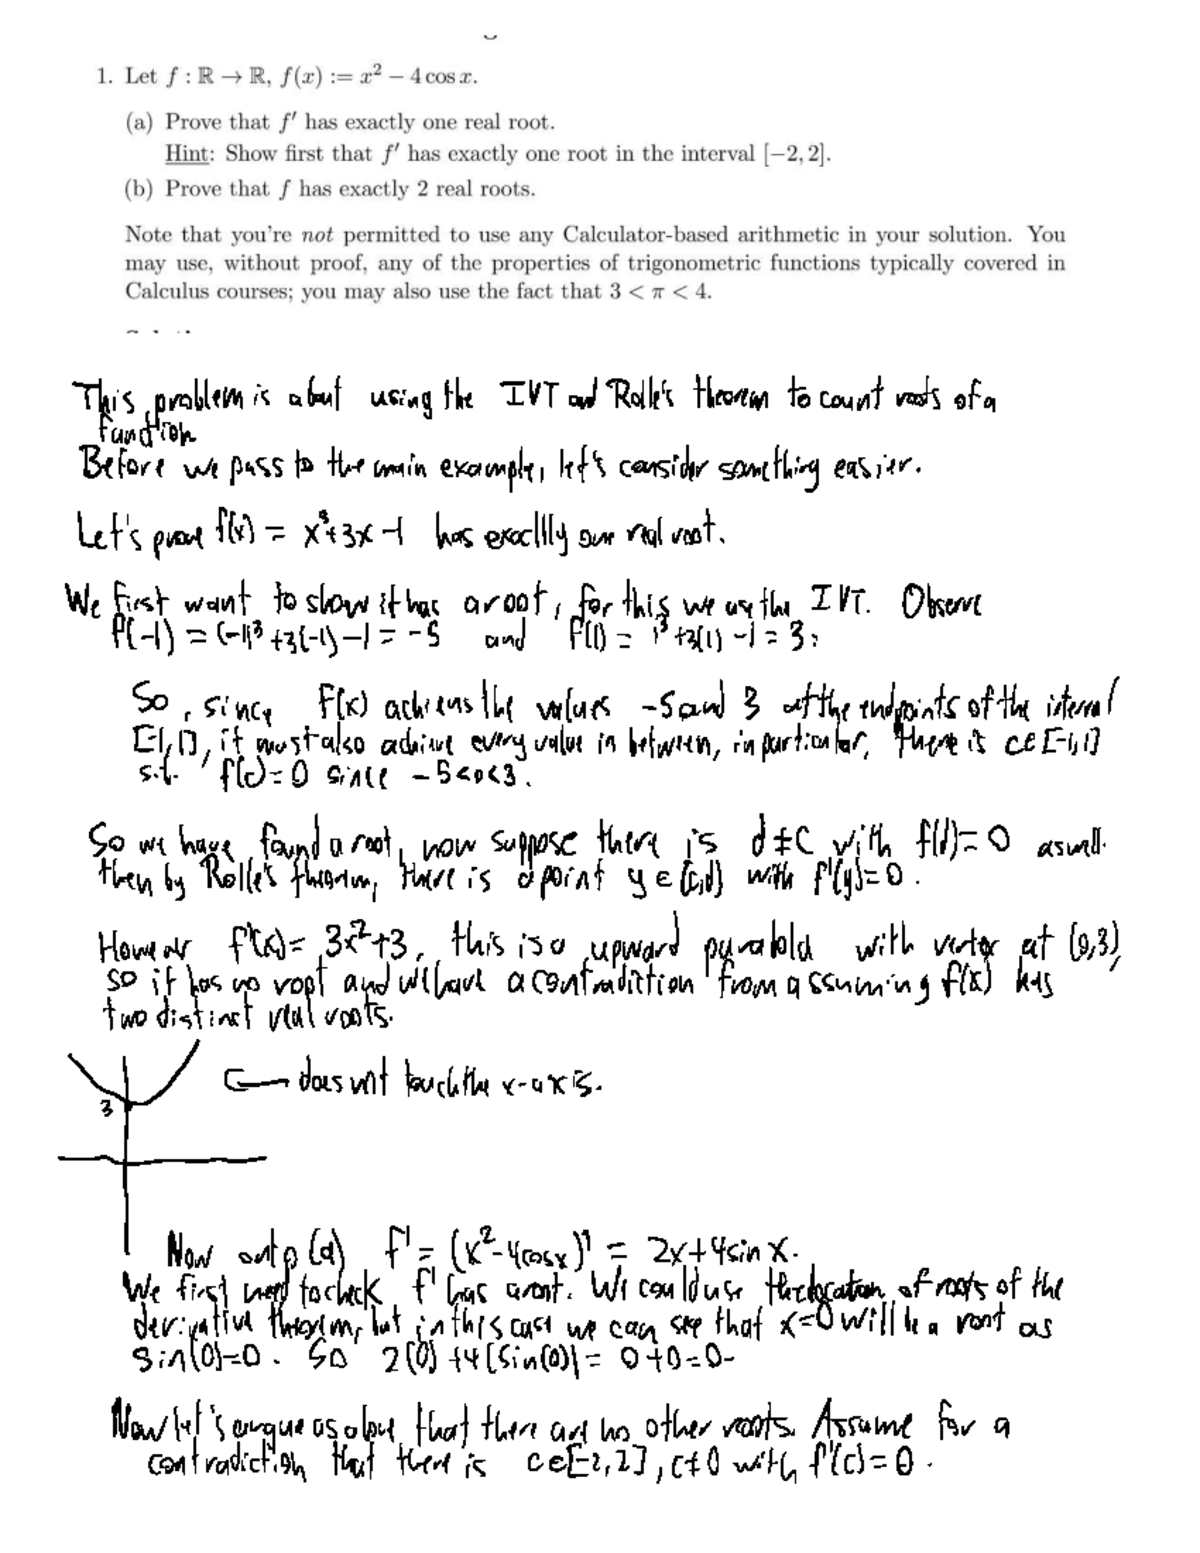 1. Let f : ℝ → ℝ, f(x) := x² − 4 cos x.
(a) Prove that f′ has exactly one real root.
Hint: Show first that f′ has exactly one root in the interval [−2, 2].
(b) Prove that f has exactly 2 real roots.
Note that you're not permitted to use any Calculator-based arithmetic in your solution. You
may use, without proof, any of the properties of trigonometric functions typically covered in
Calculus courses; you may also use the fact that 3 < π < 4.
This problem is about using the IVT and Rolle's theorem to count roots of a
function
Before we pass to the main example, let's consider something easier.
Let's prove f(x) = x³+3x-1 has exactly one real root.
We first want to show it has a root, for this we use the IVT. Observe
f(-1) = (-1)³ +3(-1) -1 = -5 and f(1) = 1³ +3(1) -1 = 3.
So, since f(x) achieves the values -5 and 3 at the endpoints of the interval
[-1,1], it must also achieve every value in between, in particular, there is c∈[-1,1]
s.t. f(c)=0 since -5<0<3.
So we have found a root, now suppose there is d≠c with f(d)=0 as well.
then by Rolle's theorem, there is a point y∈(c,d) with f'(y)=0.
However f'(x) = 3x²+3, this is a upward parabola with vertex at (0,3),
so it has no root and we have a contradiction from assuming f(x) has
two distinct real roots.
does not touch the x-axis.
3
Now onto (a) f' = (x²-4cosx)' = 2x+4sin x.
We first need to check f' has a root. We could use the location of roots of the
derivative theorem, but in this case we can see that x=0 will be a root as
sin(0)=0. So 2(0) +4(sin(0)) = 0+0=0-
Now let's argue as above that there are no other roots. Assume for a
contradiction that there is c∈[-2,2], c≠0 with f'(c)=0.